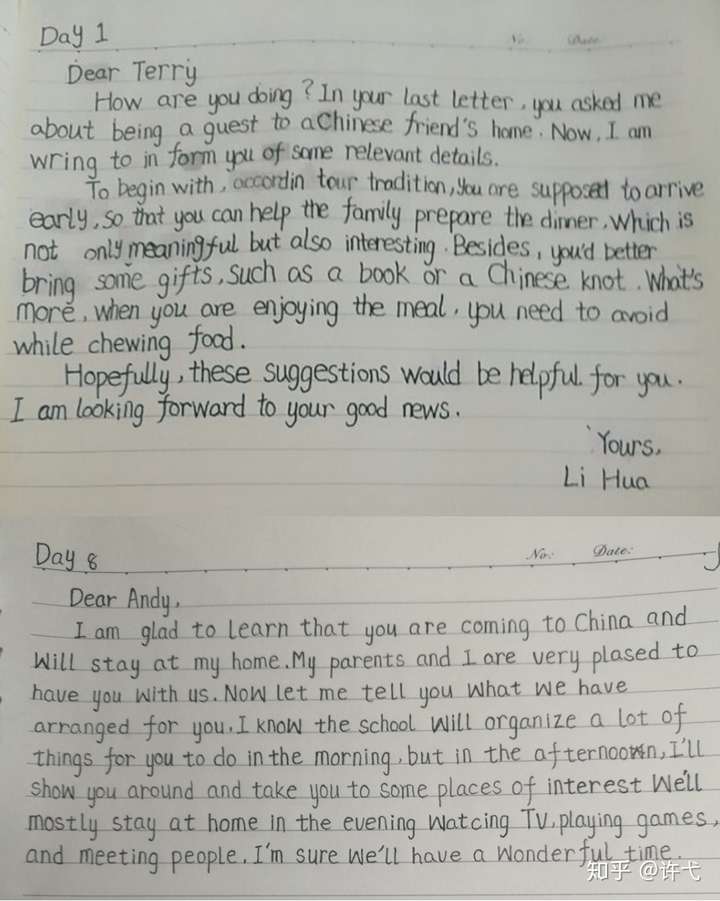 Day 1
No. Date.
Dear Terry
How are you doing? In your last letter, you asked me
about being a guest to a Chinese friend's home. Now, I am
wring to in form you of some relevant details.
To begin with, accordin tour tradition, you are supposed to arrive
early, so that you can help the family prepare the dinner, which is
not only meaningful but also interesting. Besides, you'd better
bring some gifts, such as a book or a Chinese knot. What's
more, when you are enjoying the meal, you need to avoid
while chewing food.
Hopefully, these suggestions would be helpful for you.
I am looking forward to your good news.
Yours,
Li Hua
Day 8
No: Date:
Dear Andy,
I am glad to learn that you are coming to China and
Will stay at my home. My parents and I are very plased to
have you with us. Now let me tell you what we have
arranged for you. I know the school will organize a lot of
things for you to do in the morning, but in the afternoown, I'll
show you around and take you to some places of interest We'll
mostly stay at home in the evening Watcing TV, playing games,
and meeting people. I'm sure we'll have a wonderful time.
知乎 @许弋